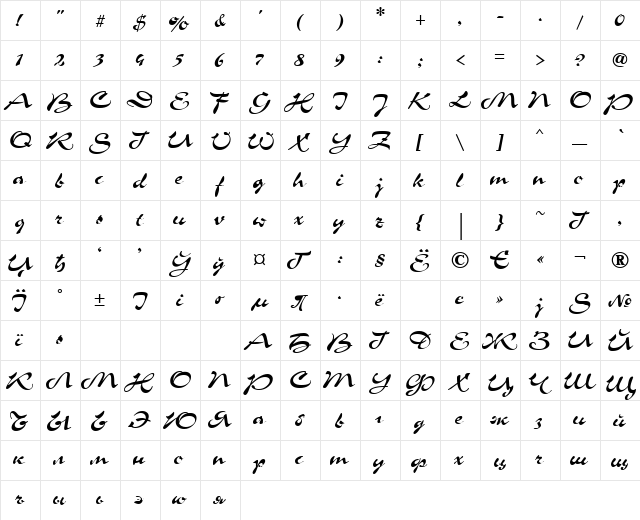 ! " # $ % & ' ( ) * + , - . / 0
1 2 3 4 5 6 7 8 9 : ; < = > ? @
A B C D E F G H I J K L M N O P
Q R S T U V W X Y Z [ \ ] ^ _ `
a b c d e f g h i j k l m n o p
q r s t u v w x y z { | } ~ Ђ ‚
Џ ђ ‘ ’ Ў ў ¤ Ґ : § Ё © Є « ¬ ®
Ї ° ± І і ґ µ ¶ · ё є » ј Ѕ №
ї ѕ А Б В Г Д Е Ж З И Й
К Л М Н О П Р С Т У Ф Х Ц Ч Ш Щ
Ъ Ы Ь Э Ю Я а б в г д е ж з и й
к л м н о п р с т у ф х ц ч ш щ
ъ ы ь э ю я